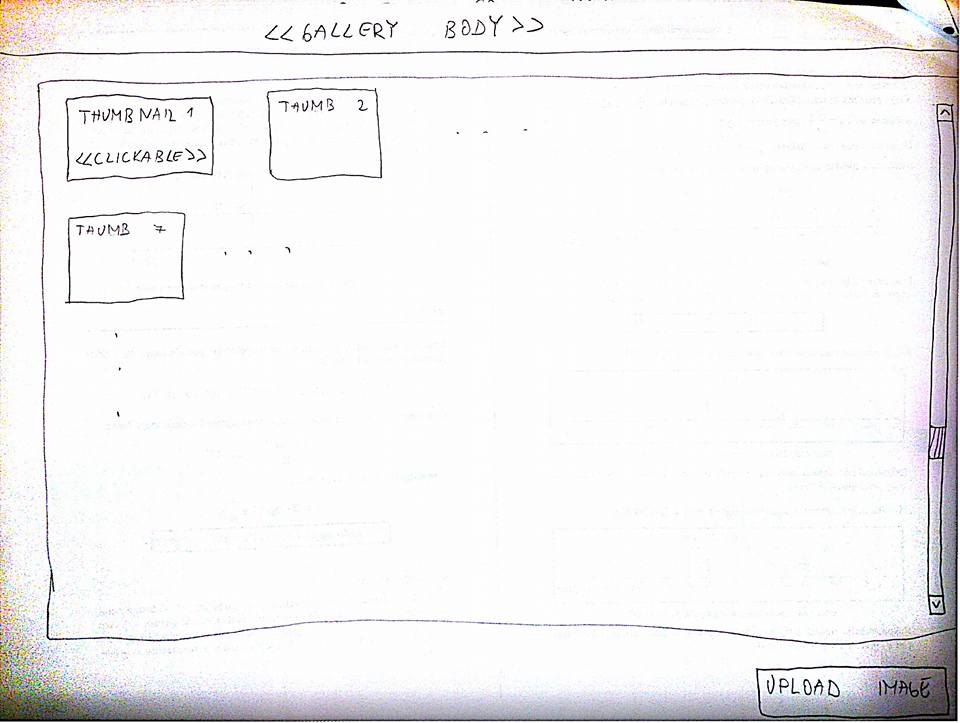 <<GALLERY BODY>>
THUMBNAIL 1
<<CLICKABLE>>
THUMB 2
. . .
THUMB 7
. . .
UPLOAD IMAGE